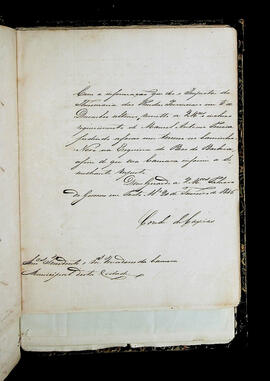 Com a informação que deo o Inspector da
Thesouraria das Rendas Provinciaes em 2 de
Dezembro ultimo, remetto a Vmces o incluso
requerimento de Manoel Antonio Pereira
pedindo aforar um terreno no Caminho
Novo na Esquina do Beco do Barbosa,
afim de que essa Camara informe a se
melhante respeito.
Deos Guarde a Vmces Palacio
do Governo em Porto Alegre 20 de Fevereiro de 1846
Conde de Caxias
Snres Presidente e Vereadores da Camara
Municipal desta Cidade